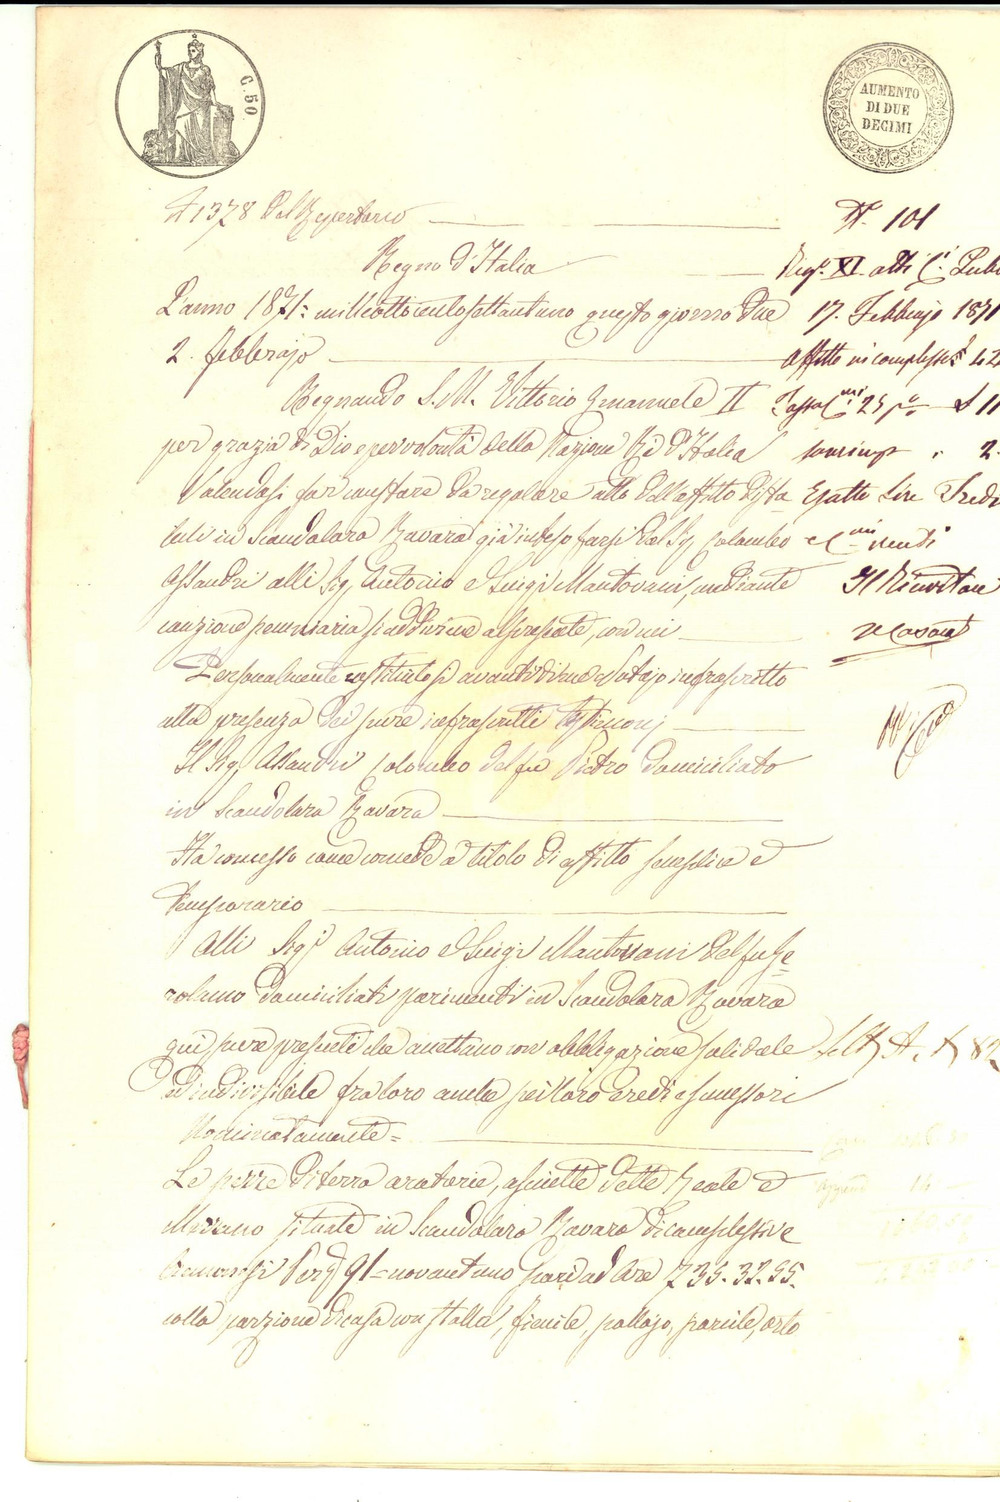 C. 50
AUMENTO
DI DUE
DECIMI
N 1378 del Repertorio
Regno d'Italia
L'anno 1871= milleottocentosettantuno questo giorno due
2. febbrajo
Regnando S. M. Vittorio Emanuele II
per grazia di Dio e per volontà della Nazione Re d'Italia
Volendosi far constare da regolare atto dell'affitto di sta-
bili in Scandolara Ravara già inteso farsi dal Sig. Colombo
Assandri alli Sig. Antonio e Luigi Mantovani, mediante
cauzione pecuniaria si addiviene al presente, con cui
Personalmente costituitosi avanti di me Notajo infrascritto
alla presenza dei pure infrascritti testimonj
Il Sig. Assandri Colombo del fu Pietro domiciliato
in Scandolara Ravara
Ha concesso come concede a titolo di affitto semplice e
temporario
Alli Sig.i Antonio e Luigi Mantovani del fu Ge=
rolamo domiciliati parimenti in Scandolara Ravara
qui pure presenti che accettano con obbligazione solidale
ed indivisibile fra loro anche pei loro eredi e successori
Nominatamente=
Le pezze di terra aratorie, asciutte dette Reale e
situate in Scandolara Ravara di complessive
Cremonesi Pert. 91= novantuno pari ad Are 735. 32. 95.
colla porzione di casa con stalla, fienile, pollajo, porcile, orto
N. 101
Reg.o XI atti Pub
17. Febbrajo 1871
Affitto in complesso 42
Tassa 25 11
2.
Esatte Lire Tredi
e C.mi venti
Il Ricevitore
Lett. A.